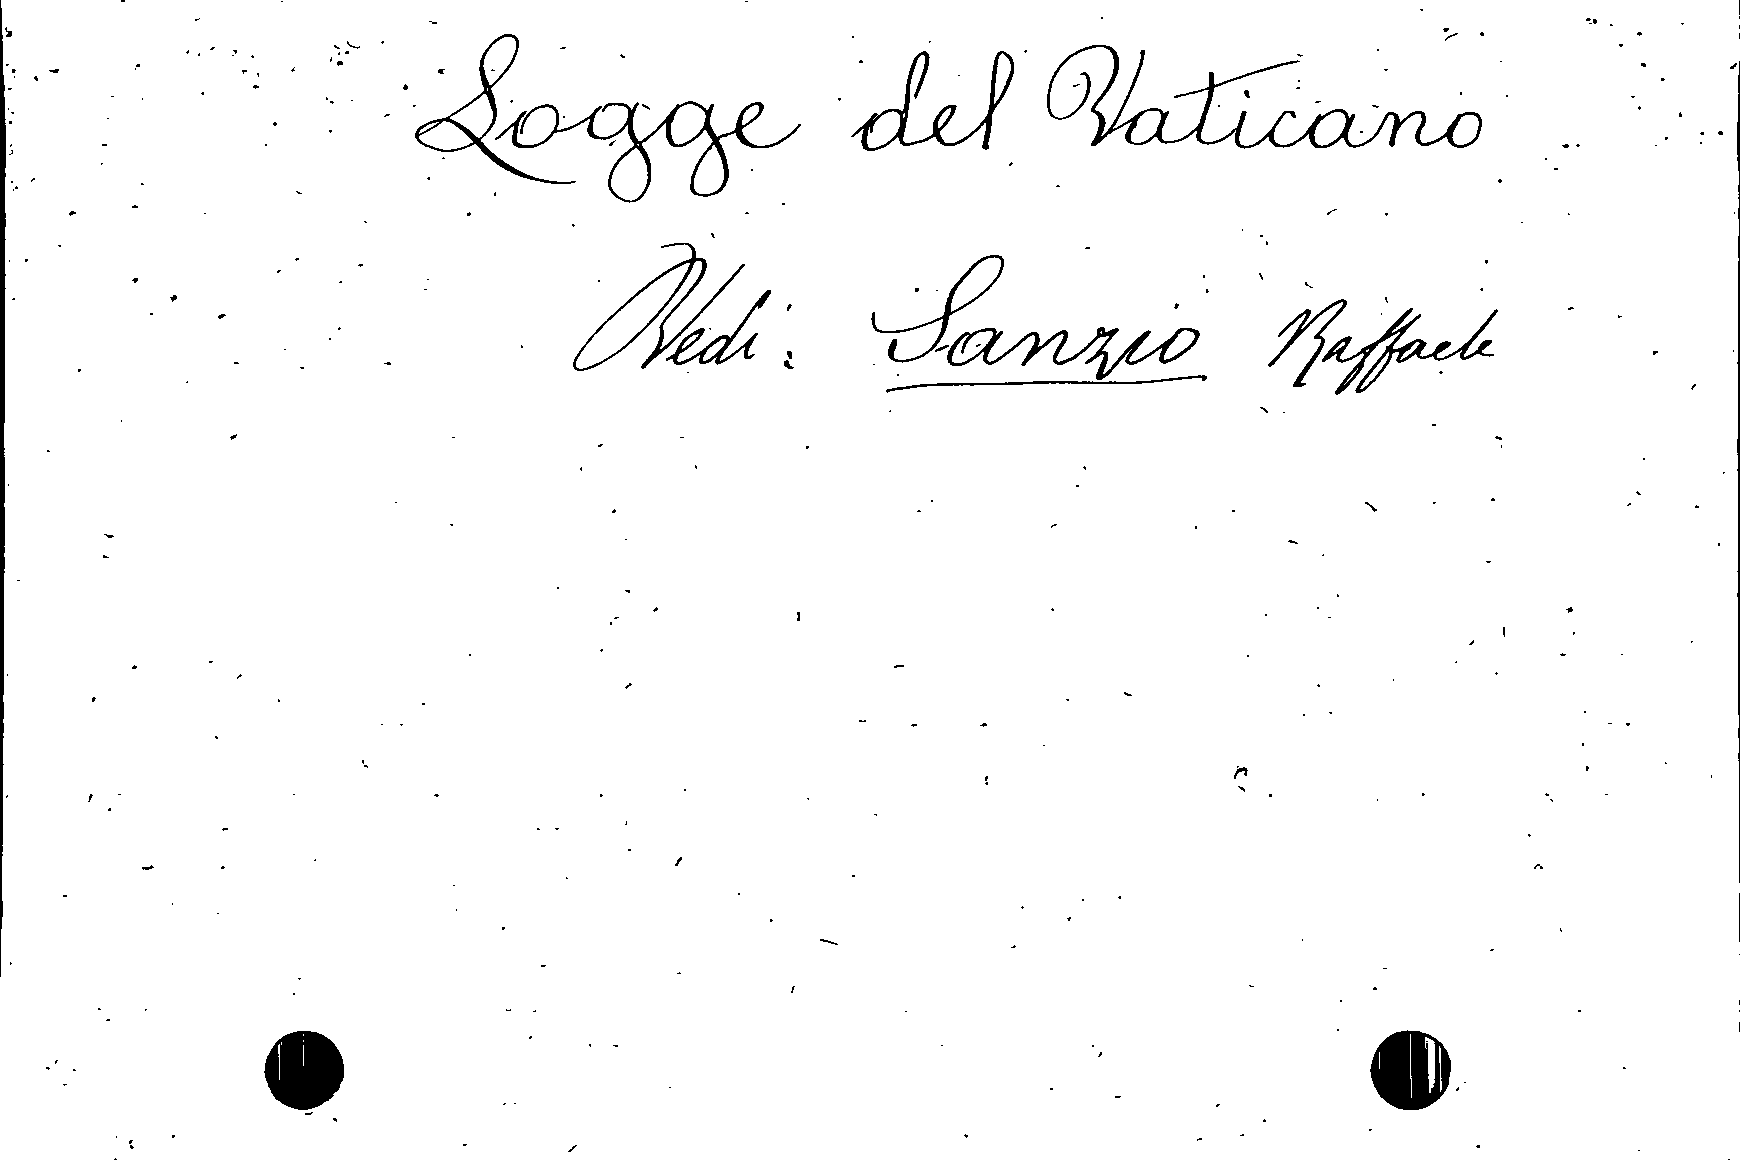 Logge del Vaticano
Vedi: Sanzio Raffaele